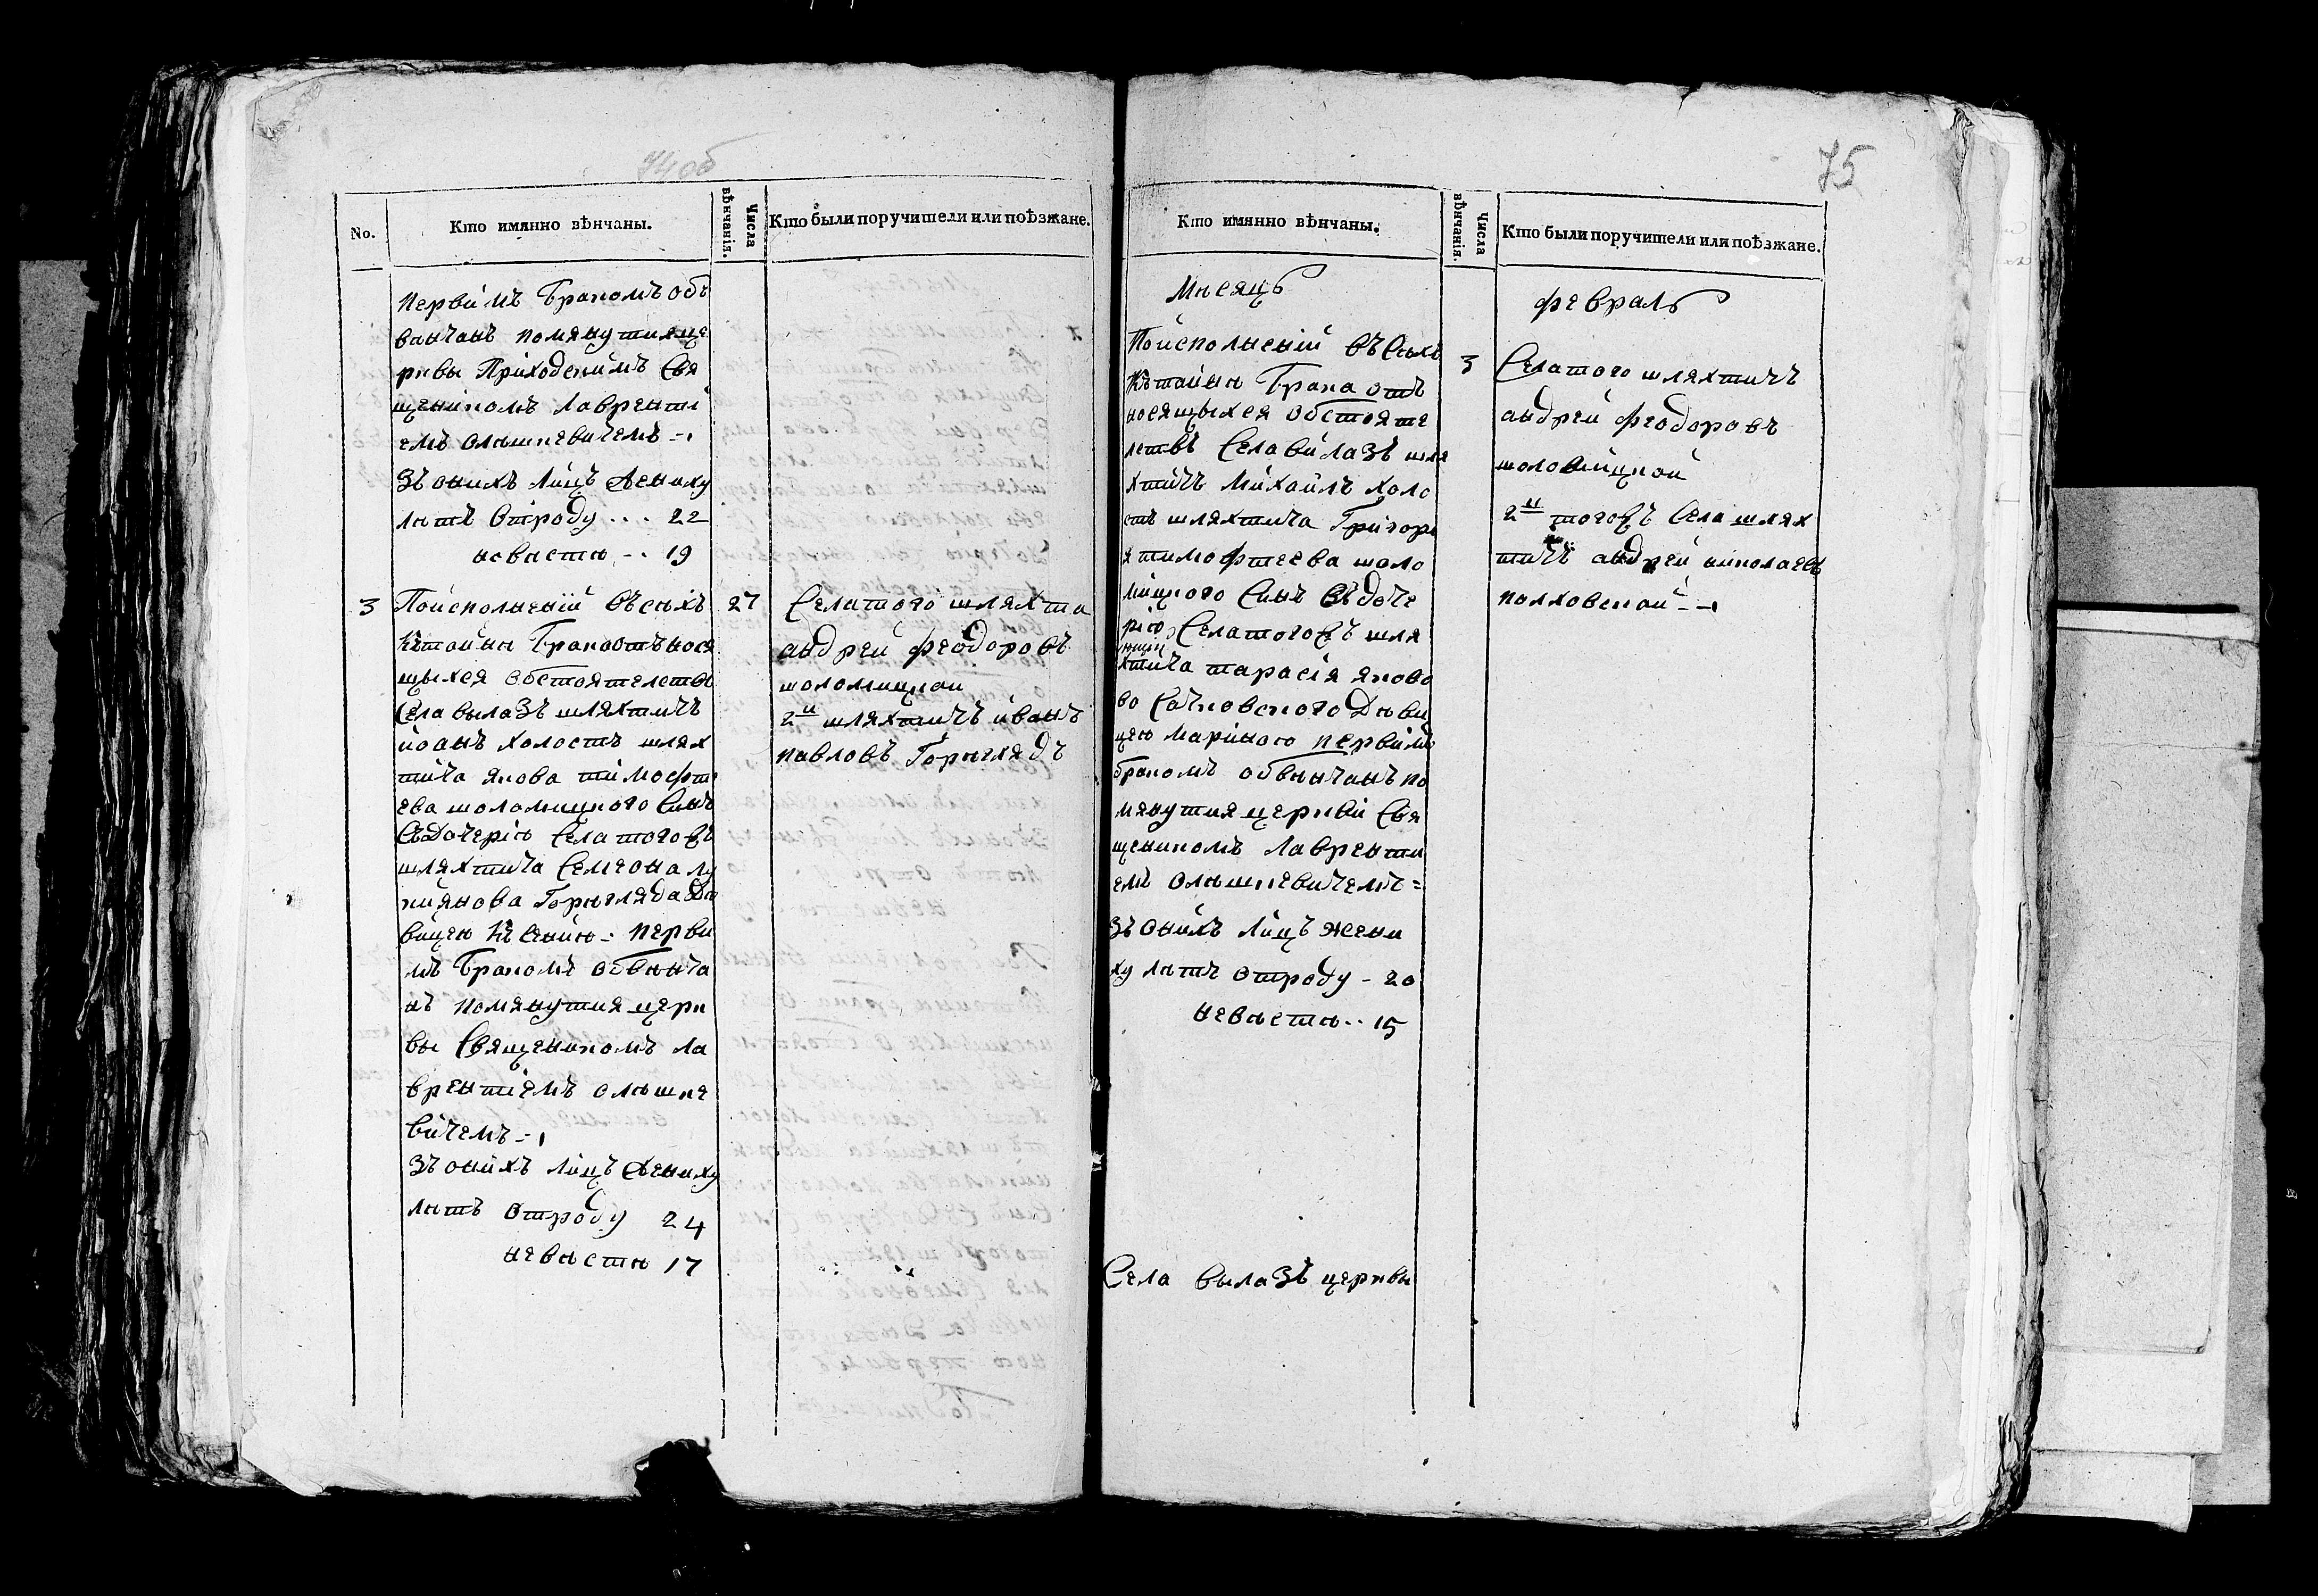 74об
No.
Кто имянно вѣнчаны.
Числа вѣнчанія.
Кто были поручители или поѣзжане.
первимъ Бракомъ объ
вѣнчанъ помянутия це
рквы Приходскимъ Свя
щеникомъ Лавренті
емъ Олѣшкевичемъ
Зъ онихъ лицъ Жениху
лѣтъ Отроду 22
невѣсти 19
3
Поисполнений Въсѣхъ
Къ тайнѣ Брака отъ нося
щыхся обстоятелствъ
Села вылазъ шляхтичъ
иоанъ холостъ шлях
тича якова тимофте
ева шоломицкого Синъ
Съ Дочерію Села тогожъ
шляхтича Семеона лу
киянова Горкгляда Дѣ
вицею Ксенією первы
мъ Бракомъ обвѣнча
нъ помянутия церк
вы Священикомъ ла
врентіемъ олѣшке
вичемъ
Зъ онихъ лицъ Жениху
лѣтъ отроду 24
невѣсти 17
27
Села того шляхта
андрей феодоровъ
шоломицкои
2й шляхтичъ иванъ
павловъ Горкглядъ
75
Кто имянно вѣнчаны.
Числа вѣнчанія.
Кто были поручители или поѣзжане.
Мѣсяцъ
февраль
Поисполнений Въ Сѣхъ
Къ тайнѣ Брака отъ
носящыхся обстояте
лствъ Села вилазъ шля
хтичъ Михаилъ холо
стъ шляхтича Григори
я тимофтеева шоло
мицкого Синъ Съ доче
рію Села тогожъ шля
хтича тарасія яково
во Сачковского Дѣви
цею Мариною первимъ
бракомъ обвѣнчанъ по
мянутия церквй Свя
щеникомъ Лавренти
емъ олѣшкевичемъ
Зъ онихъ лицъ жени
ху лѣтъ отроду 20
невѣсти 15
Села вылазъ церквы
3
Села того шляхтичъ
андрей феодоровъ
шоломицкой
2й тогожъ Села шлях
тичъ андрей николаевъ
полховской